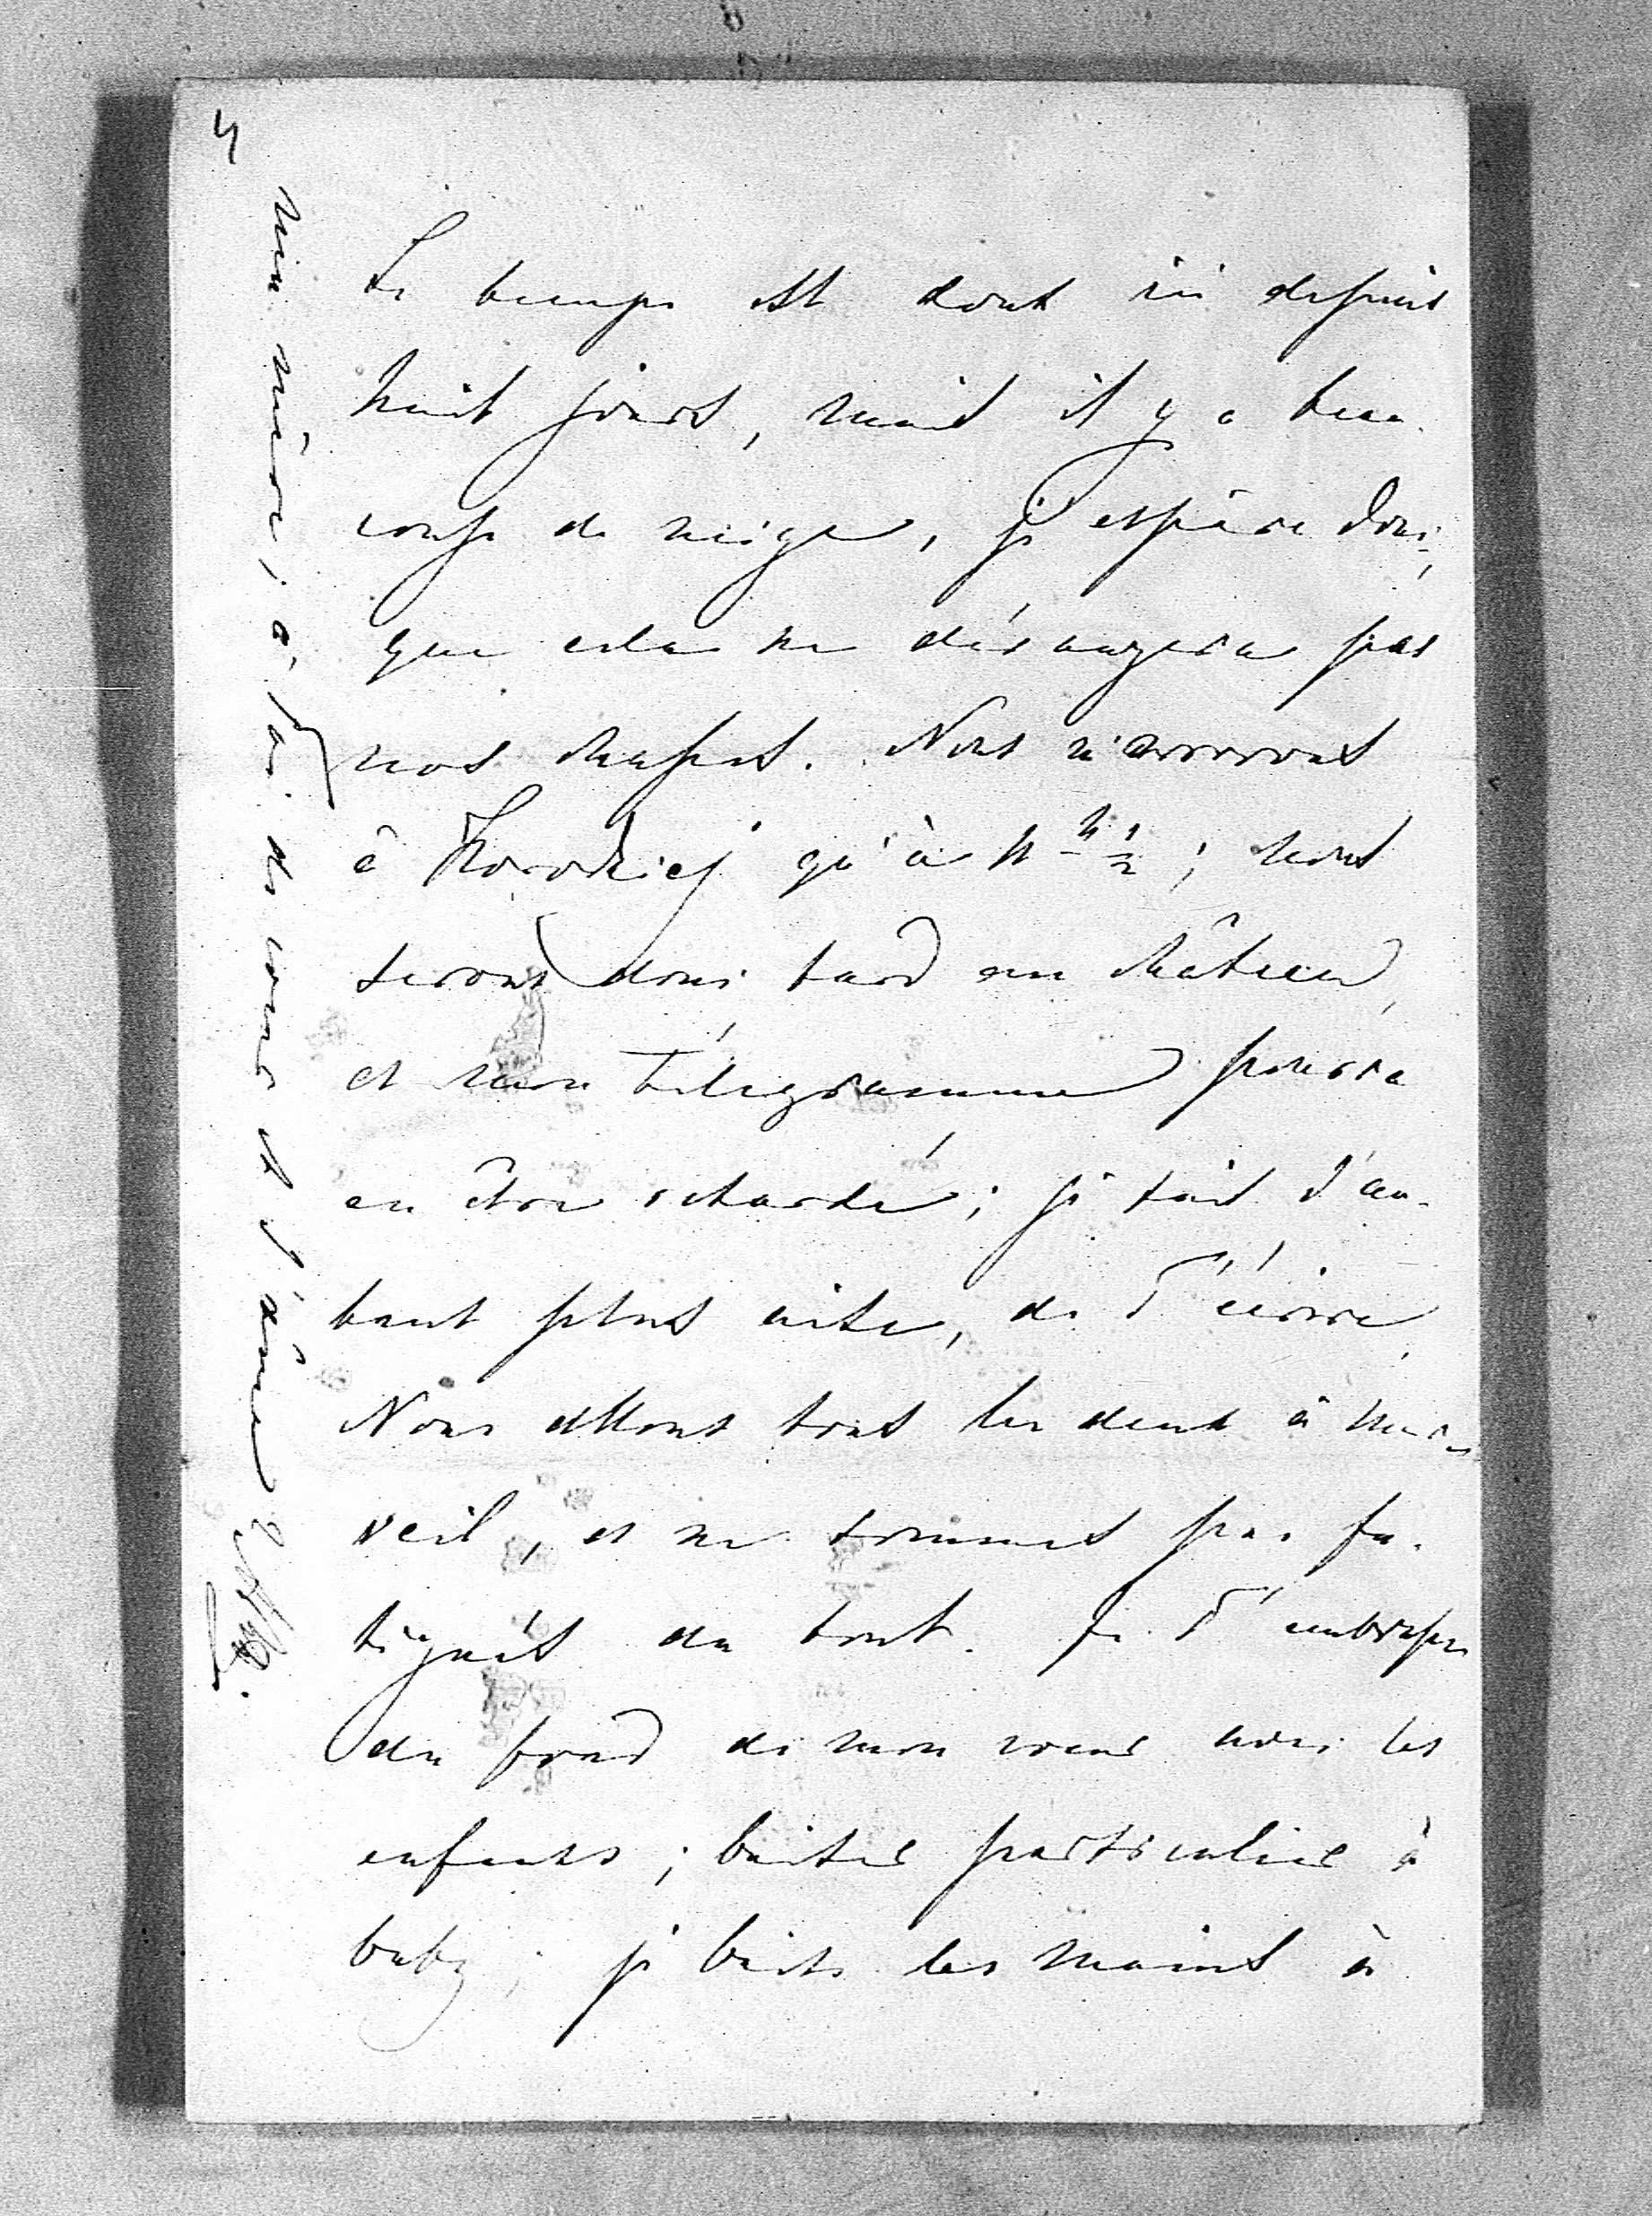 4
Le temps est doux ici depuis
huit jours, mais il y a beau-
coup de neige, j'espère donc,
que cela ne dérangera pas
nos chasses. Nous n'arrivons
à qu'à 11 h ½; nous
serons donc tard au château,
et mon télégramme pourra
en être retardé; je tâis d'au-
tant plus aise, de T'écrire,
Nous allons tous les deux à mer-
veil, et ne sommes pas fa-
tigués du tout. Je T'embrasse
du fond de mon cœur avec les
enfants; baiser particulier à
baby; je baise les mains à
ma mère, à Toi de cœur et d'âme